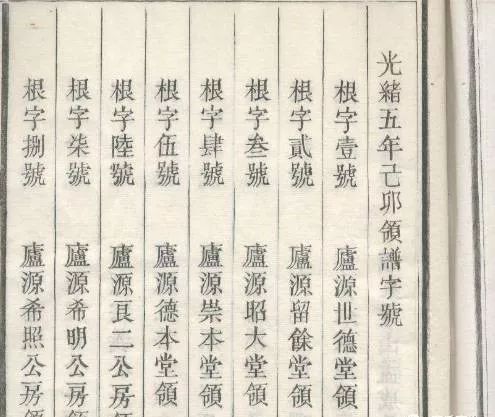 光緒五年己卯領譜字號
根字壹號 廬源世德堂領
根字貳號 廬源留餘堂領
根字叁號 廬源昭大堂領
根字肆號 廬源崇本堂領
根字伍號 廬源德本堂領
根字陸號 廬源良二公房領
根字柒號 廬源希明公房領
根字捌號 廬源希照公房領